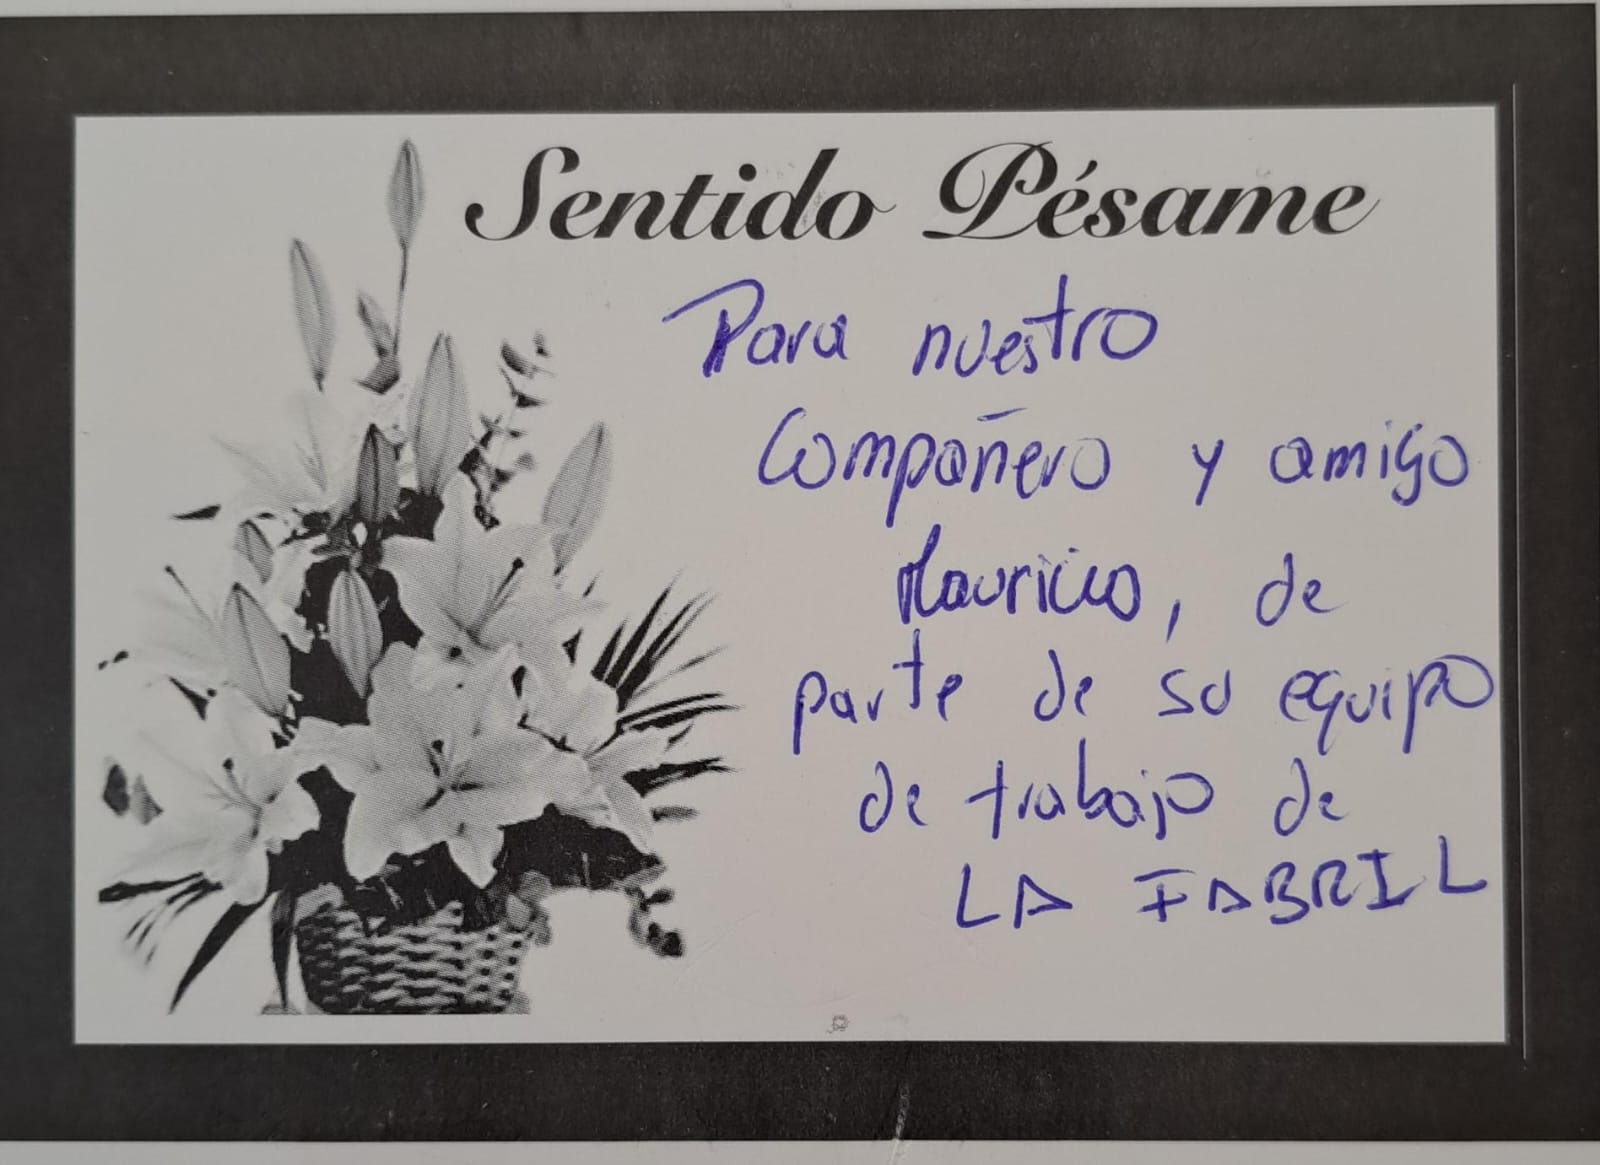 Sentido Pésame
Para nuestro
Compañero y amigo
Mauricio, de
parte de su equipo
de trabajo de
LA FABRIL